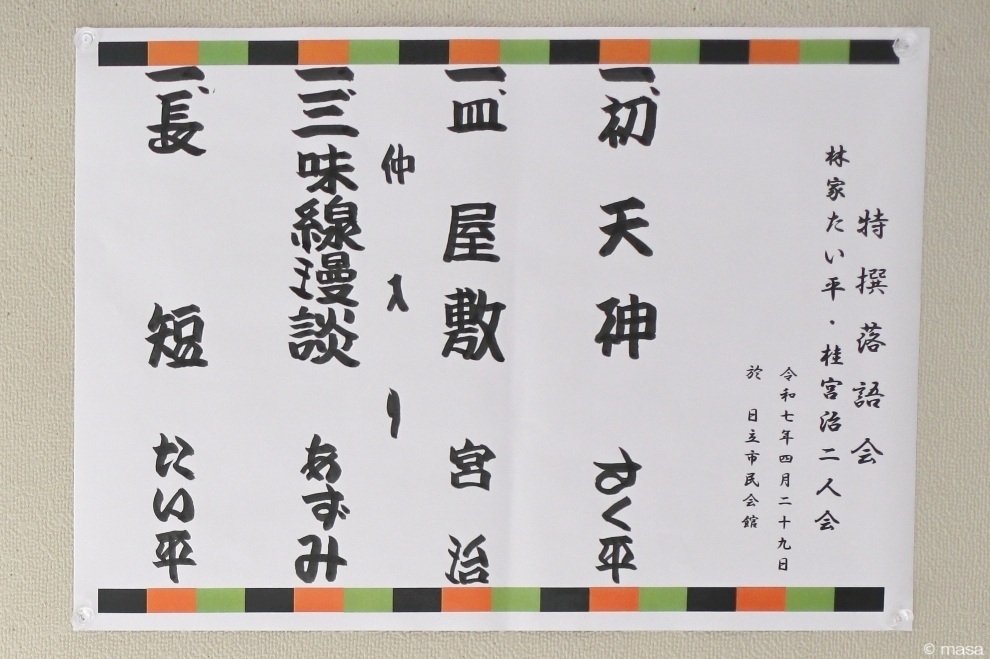 特撰落語会
林家たい平・桂宮治二人会
令和七年四月二十九日
於 日立市民会館
一、初天神 すく平
一、皿屋敷 宮治
仲入り
一、三味線漫談 あずみ
一、長短 たい平
© masa